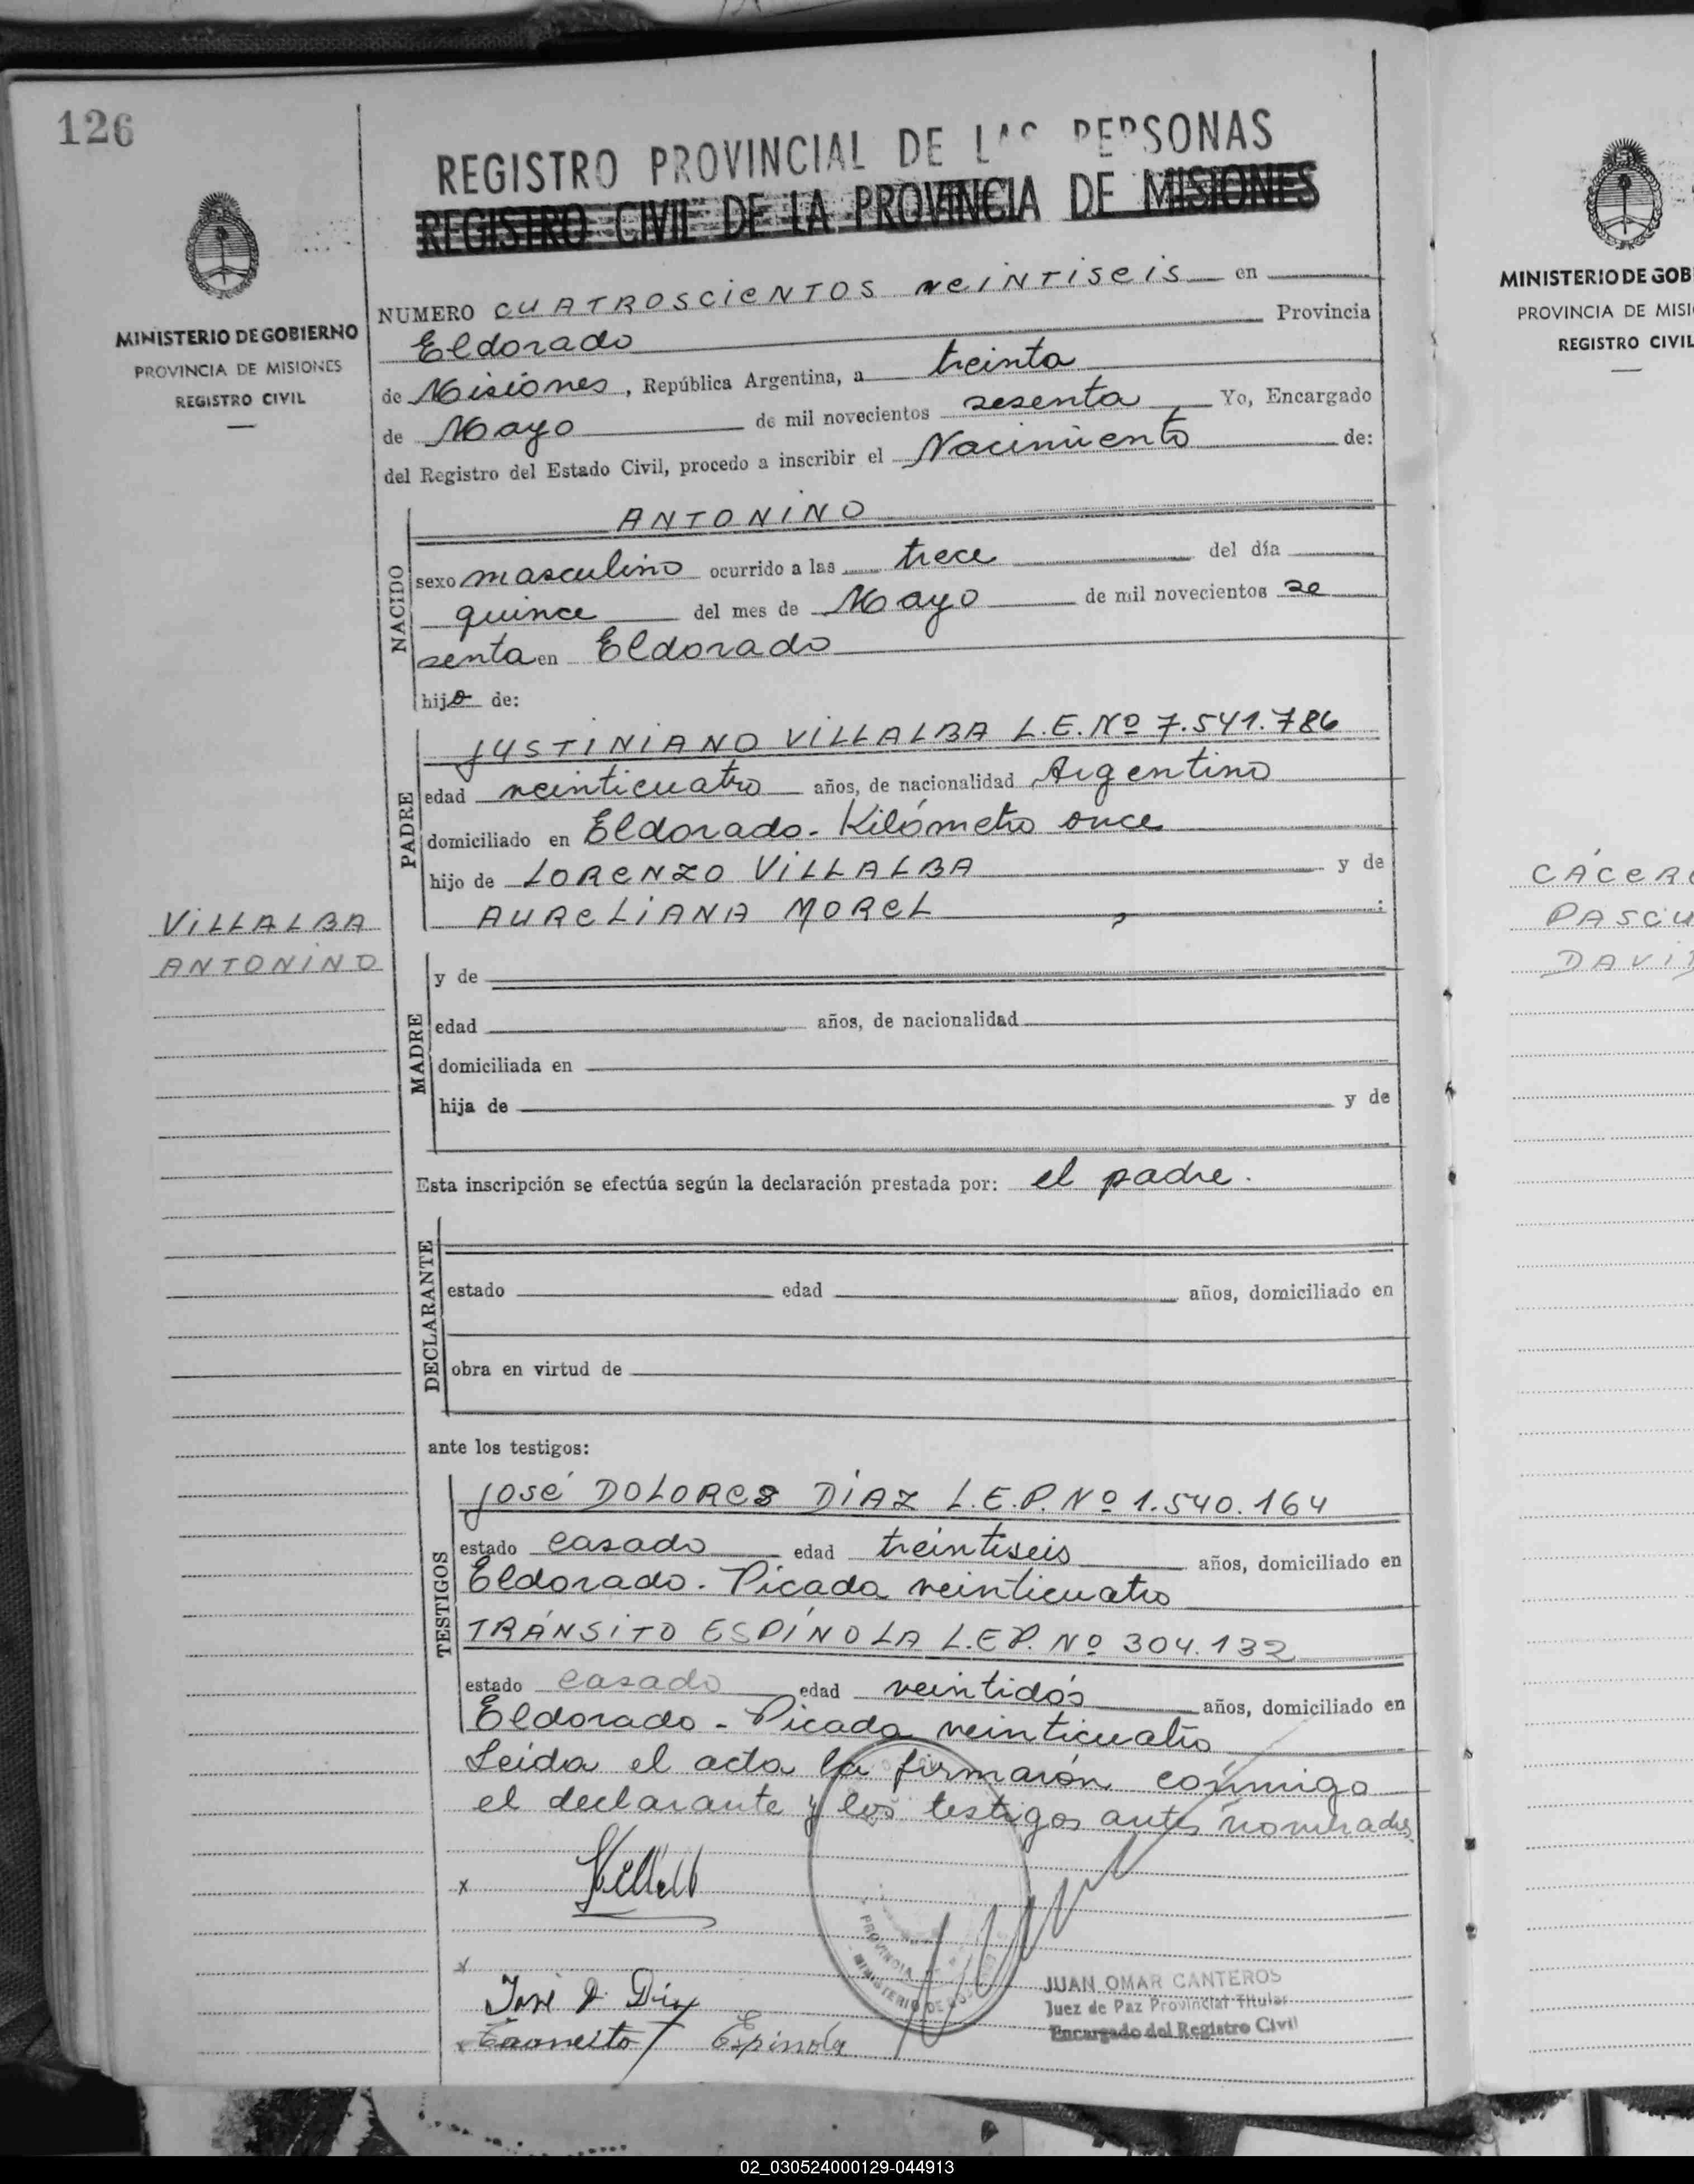 126
REGISTRO PROVINCIAL DE LAS PERSONAS
REGISTRO CIVIL DE LA PROVINCIA DE MISIONES
MINISTERIO DE GOBIERNO
PROVINCIA DE MISIONES
REGISTRO CIVIL
NUMERO CUATROSCIENTOS VEINTISEIS en
Eldorado Provincia
de Misiones, República Argentina, a treinta
de Mayo de mil novecientos sesenta Yo, Encargado
del Registro del Estado Civil, procedo a inscribir el Nacimiento de:
NACIDO
ANTONINO
sexo masculino ocurrido a las trece del día
quince del mes de Mayo de mil novecientos se
senta en Eldorado
hijo de:
PADRE
JUSTINIANO VILLALBA L.E. Nº 7.541.786
edad veinticuatro años, de nacionalidad Argentino
domiciliado en Eldorado - Kilómetro once
hijo de LORENZO VILLALBA y de
AURELIANA MOREL , :
VILLALBA
ANTONINO
MADRE
y de
edad años, de nacionalidad
domiciliada en
hija de y de
Esta inscripción se efectúa según la declaración prestada por: el padre.
DECLARANTE
estado edad años, domiciliado en
obra en virtud de
ante los testigos:
TESTIGOS
JOSÉ DOLORES DÍAZ L.E.P. Nº 1.540.164
estado casado edad treintiseis años, domiciliado en
Eldorado - Picada veinticuatro
TRÁNSITO ESPÍNOLA L.E.P. Nº 304.132
estado casado edad veintidós años, domiciliado en
Eldorado - Picada veinticuatro
Leída el acta la firmaron conmigo
el declarante y los testigos antes nombrados
x
x
José D. Díaz
x Espinola
PROVINCIA DE
MINISTERIO DE
JUAN OMAR CANTEROS
Juez de Paz Provincial Titular
Encargado del Registro Civil
MINISTERIO DE GOB
PROVINCIA DE MISI
REGISTRO CIVIL
CÁCER
PASCU
DAVI
02_030524000129-044913